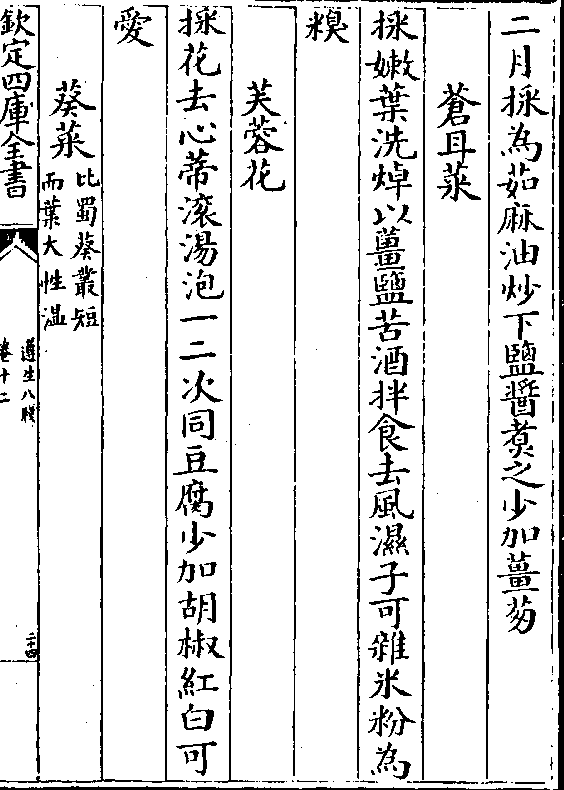 二月採為茹麻油炒下鹽醬煑之少加薑茐
蒼耳菜
採嫩葉洗焯以薑鹽苦酒拌食去風濕子可雜米粉為
糗
芙蓉花
採花去心蒂滚湯泡一二次同豆腐少加胡椒紅白可
愛
葵菜
比蜀葵叢短
而葉大性温
欽定四庫全書
遵生八牋
卷十二
二十四